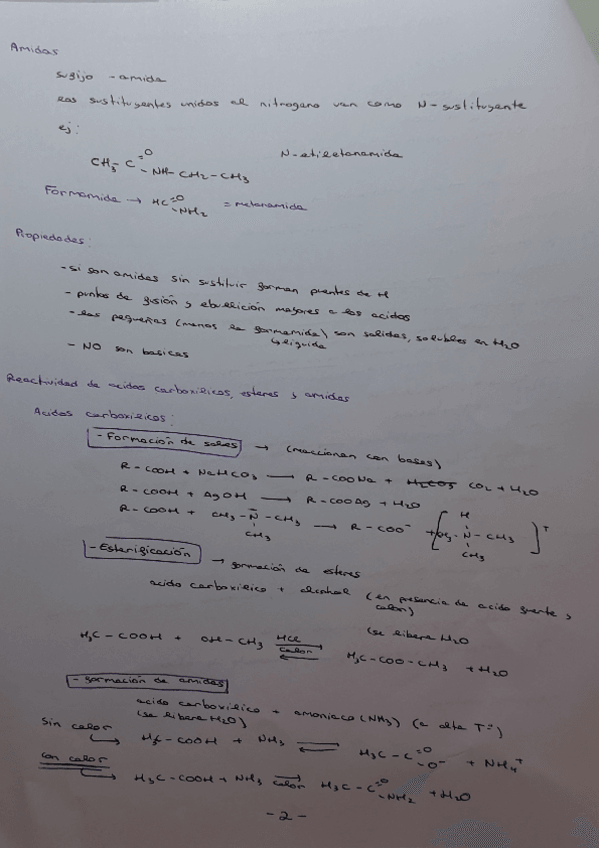 Amidas
sufijo -amida
las sustituyentes unidos al nitrogeno van como N-sustituyente
ej:
CH3-C=O-NH-CH2-CH3 N-etiletanamida
Formamida → HC=O-NH2 = metanamida
Propiedades:
- si son amidas sin sustituir forman puentes de H
- puntos de fusión y ebullición mayores a los acidos
- las pequeñas (menos la formamida) son solidas, solubles en H2O
↳ liquida
- NO son basicas
Reactividad de acidos carboxilicos, esteres y amidas
Acidos carboxilicos:
- Formación de sales → (reaccionan con bases)
R-COOH + NaHCO3 → R-COONa + H2CO3 CO2 + H2O
R-COOH + AgOH → R-COOAg + H2O
R-COOH + CH3-N-CH3 → R-COO- + [CH3-N-CH3]+
CH3 H CH3
- Esterificación → formación de esteres
acido carboxilico + alcohol (en presencia de acido fuerte y calor)
(se libera H2O
H3C-COOH + OH-CH3 HCl calor ⇌ H3C-COO-CH3 + H2O
- formación de amidas
acido carboxilico + amoniaco (NH3) (a alta Tª)
(se libera H2O)
Sin calor
↳ H3C-COOH + NH3 ⇌ H3C-C=O-O- + NH4+
con calor
↳ H3C-COOH + NH3 ⇌ calor H3C-C=O-NH2 + H2O
-2-